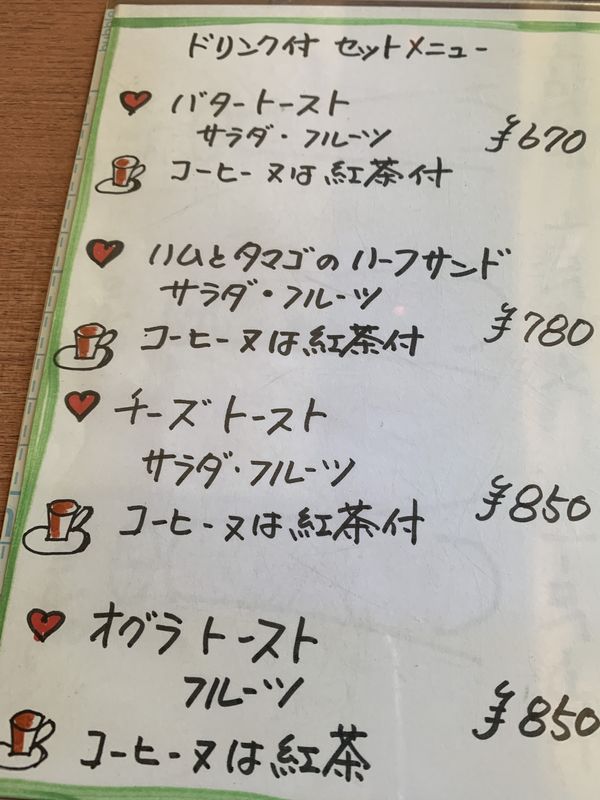 ドリンク付 セットメニュー
バタートースト
サラダ・フルーツ
¥670
コーヒー又は紅茶付
ハムとタマゴのハーフサンド
サラダ・フルーツ
¥780
コーヒー又は紅茶付
チーズトースト
サラダ・フルーツ
¥850
コーヒー又は紅茶付
オグラトースト
フルーツ
¥850
コーヒー又は紅茶